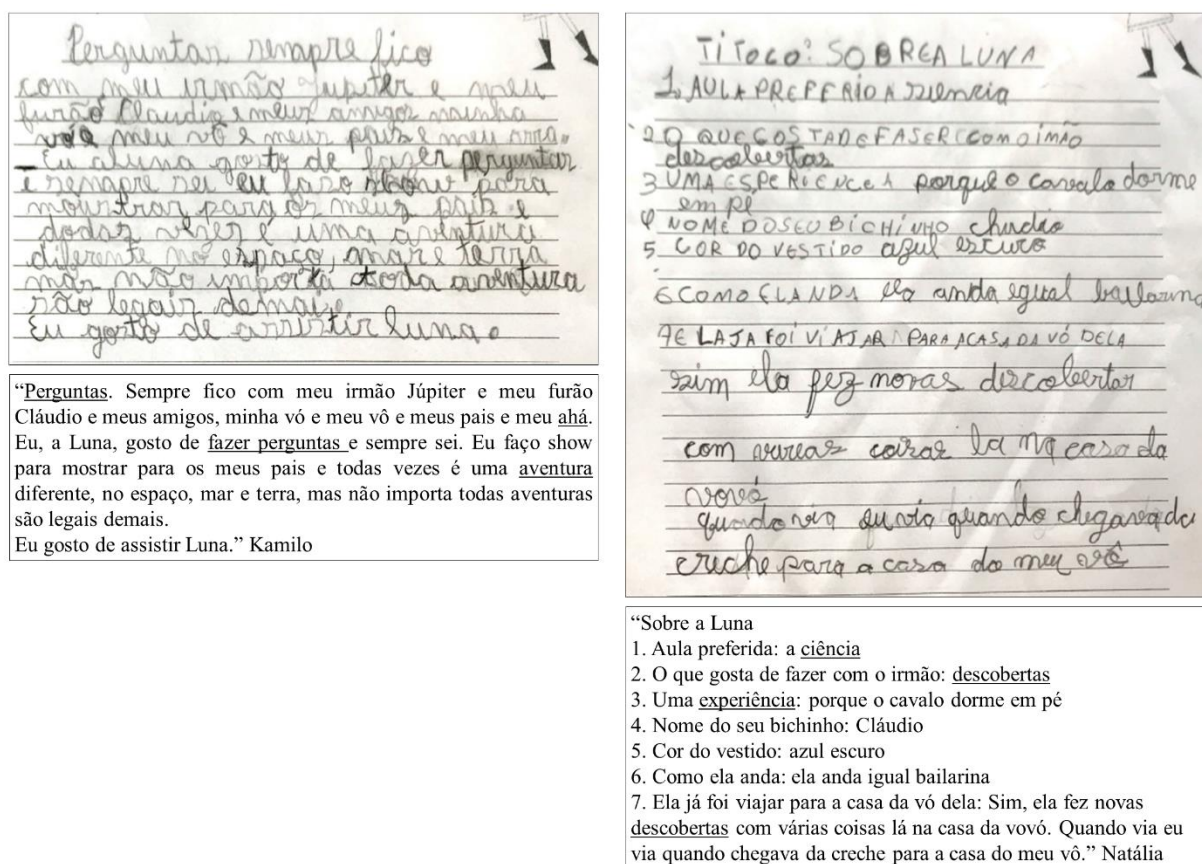 Perguntas sempre fico
com meu irmão Jupiter e meu
furão Claudio e meus amigos minha
vóe meu vô e meus pais e meu
Eu aluna gosto de fazer perguntas
e sempre sei eu faso show para
mourtrar para os meus pais e
dodas vezes é uma aventura
diferente no espaço, mar e terra
mas não importa toda aventura
são legais demais
Eu gosto de assistir luna.
“Perguntas. Sempre fico com meu irmão Júpiter e meu furão
Cláudio e meus amigos, minha vó e meu vô e meus pais e meu ahá.
Eu, a Luna, gosto de fazer perguntas e sempre sei. Eu faço show
para mostrar para os meus pais e todas vezes é uma aventura
diferente, no espaço, mar e terra, mas não importa todas aventuras
são legais demais.
Eu gosto de assistir Luna.” Kamilo
TíToco: SOBREA LUNA
1. AULA PREFERIDA
2 O QUE GOSTA DE FASER COM O IMÃO
descobertas
3 UMA porque o cavalo dorme
em pé
4 NOME DO SEU BICHINHO
5 COR DO VESTIDO azul escuro
6 COMO ELANDA ela anda igual bailarina
7 E LA JA FOI VIAJAR PARA ACASA DA VÓ DELA
sim ela fez novas descobertas
com coisas la na casa da
vovó
via quando chegava da
creche para a casa do meu vô
“Sobre a Luna
1. Aula preferida: a ciência
2. O que gosta de fazer com o irmão: descobertas
3. Uma experiência: porque o cavalo dorme em pé
4. Nome do seu bichinho: Cláudio
5. Cor do vestido: azul escuro
6. Como ela anda: ela anda igual bailarina
7. Ela já foi viajar para a casa da vó dela: Sim, ela fez novas
descobertas com várias coisas lá na casa da vovó. Quando via eu
via quando chegava da creche para a casa do meu vô.” Natália